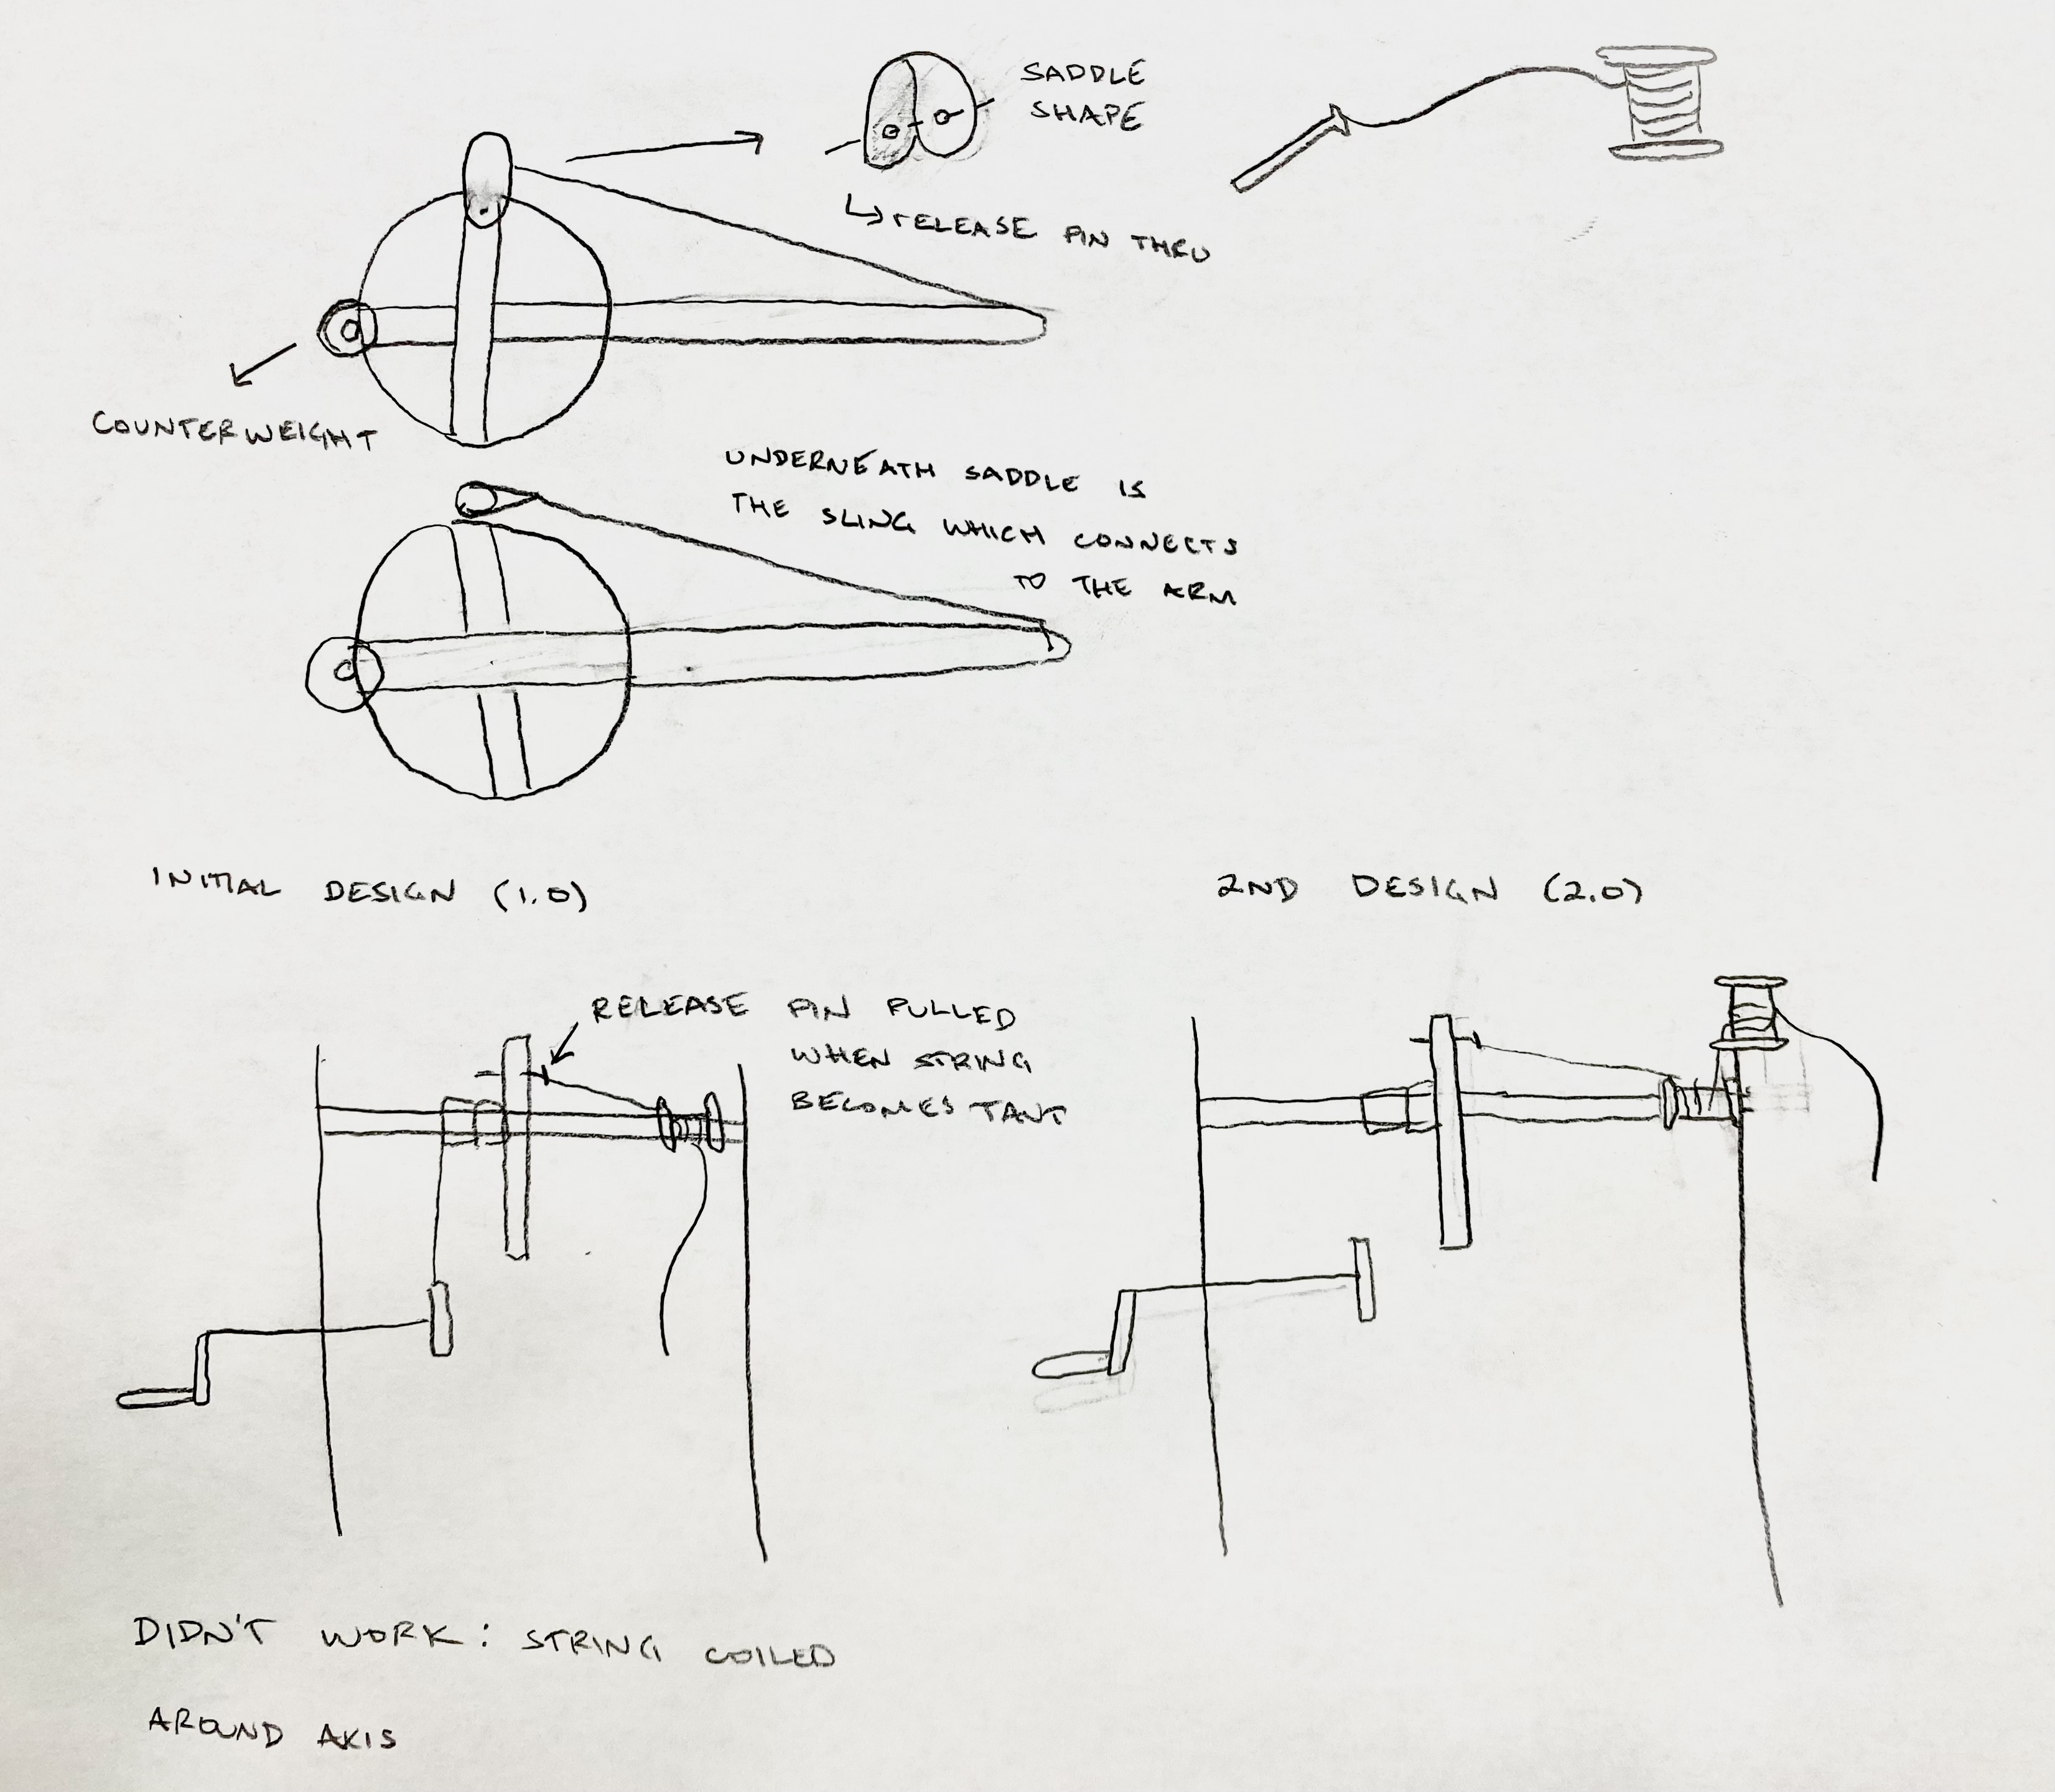 SADDLE
SHAPE
↳ RELEASE PIN THRU
COUNTERWEIGHT
UNDERNEATH SADDLE IS
THE SLING WHICH CONNECTS
TO THE ARM
INITIAL DESIGN (1.0)
2ND DESIGN (2.0)
RELEASE PIN PULLED
WHEN STRING
BECOMES TANT
DIDN'T WORK: STRING COILED
AROUND AXIS